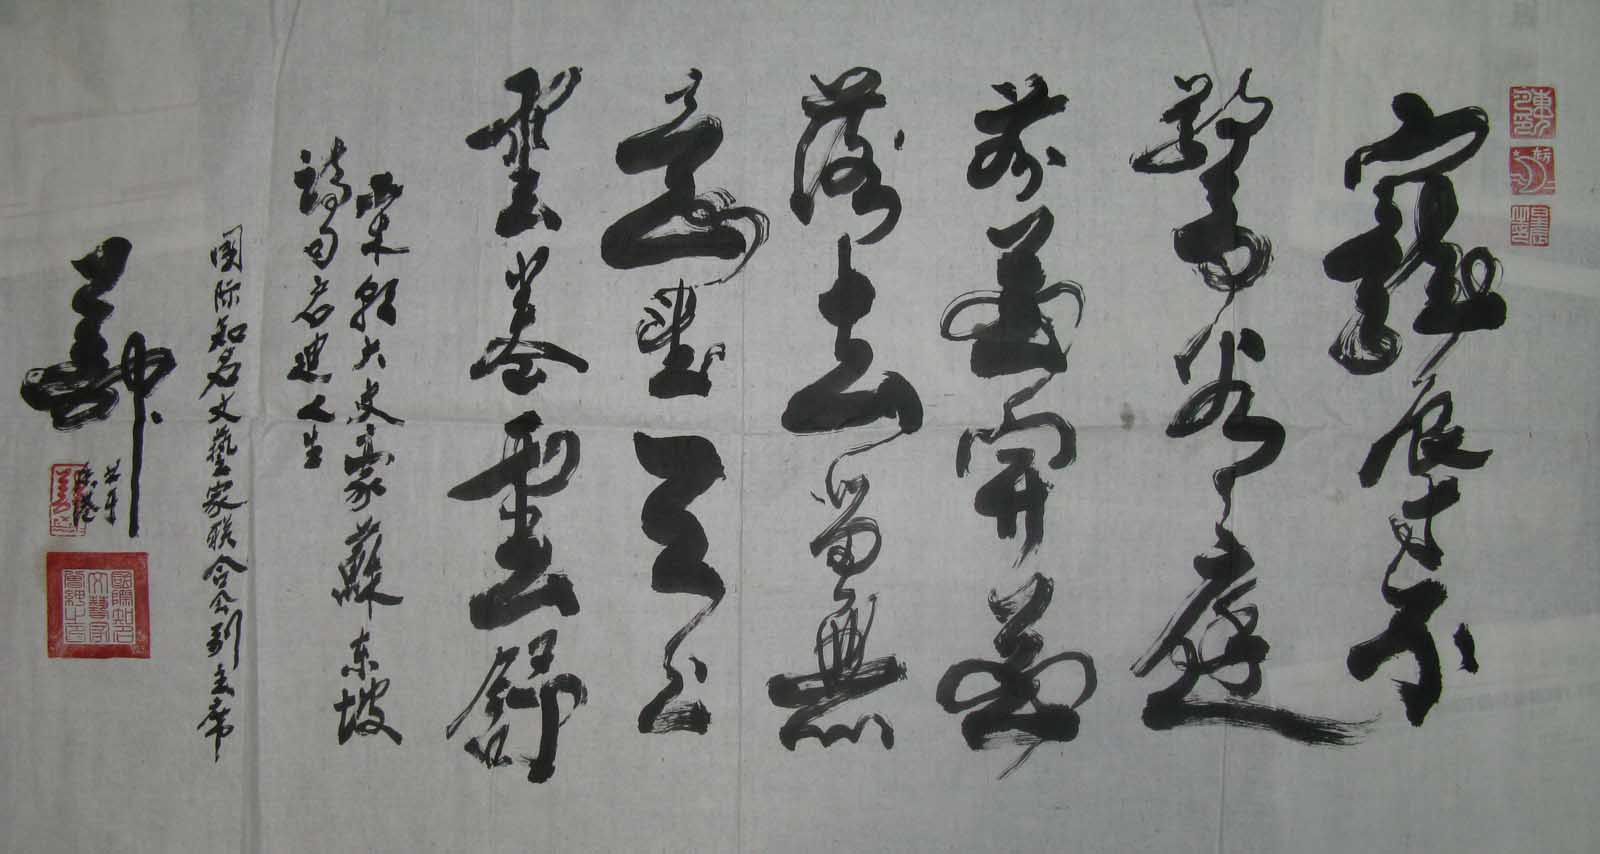 寵辱不
驚看庭
前花開花
落去留無
意望天上
雲卷雲舒
宋朝大文豪蘇东坡
詩句启迪人生
国际知名文藝家联合会副主席